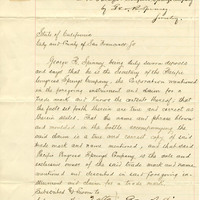 State of California
City and County of San Francisco } ss
George R. Spinney being duly sworn deposes
and says that he is the Secretary of the Pacific
Congress Springs Company, the Corporation mentioned
in the foregoing instrument and claim for a
trade mark and knows the contents thereof, that
the facts set forth therein are true and correct as
therein stated. That the name and phrase blown
and moulded in the bottle accompanying the
said claim is a true and correct copy of said
trade mark and name mentioned, and that said
Pacific Congress Springs Company, is the sole and
exclusive owner of the said trade mark and name
mentioned and described in said foregoing
instrument and claim for a trade mark.